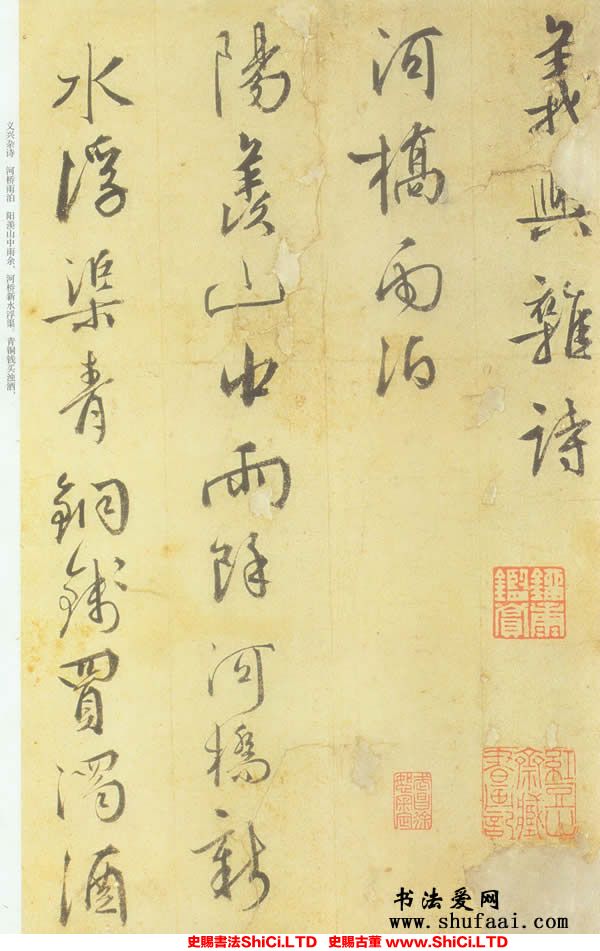 義興雜詩
河橋雨泊
陽羨山中雨餘河橋新
水浮渠青銅錢買濁酒
义兴杂诗 河桥雨泊 阳羡山中雨余,河桥新水浮渠。青铜钱买浊酒,
鑑賞
书法爱网
www.shufaai.com
史賜書法ShiCi.LTD 史賜古董 www.ShiCi.LTD